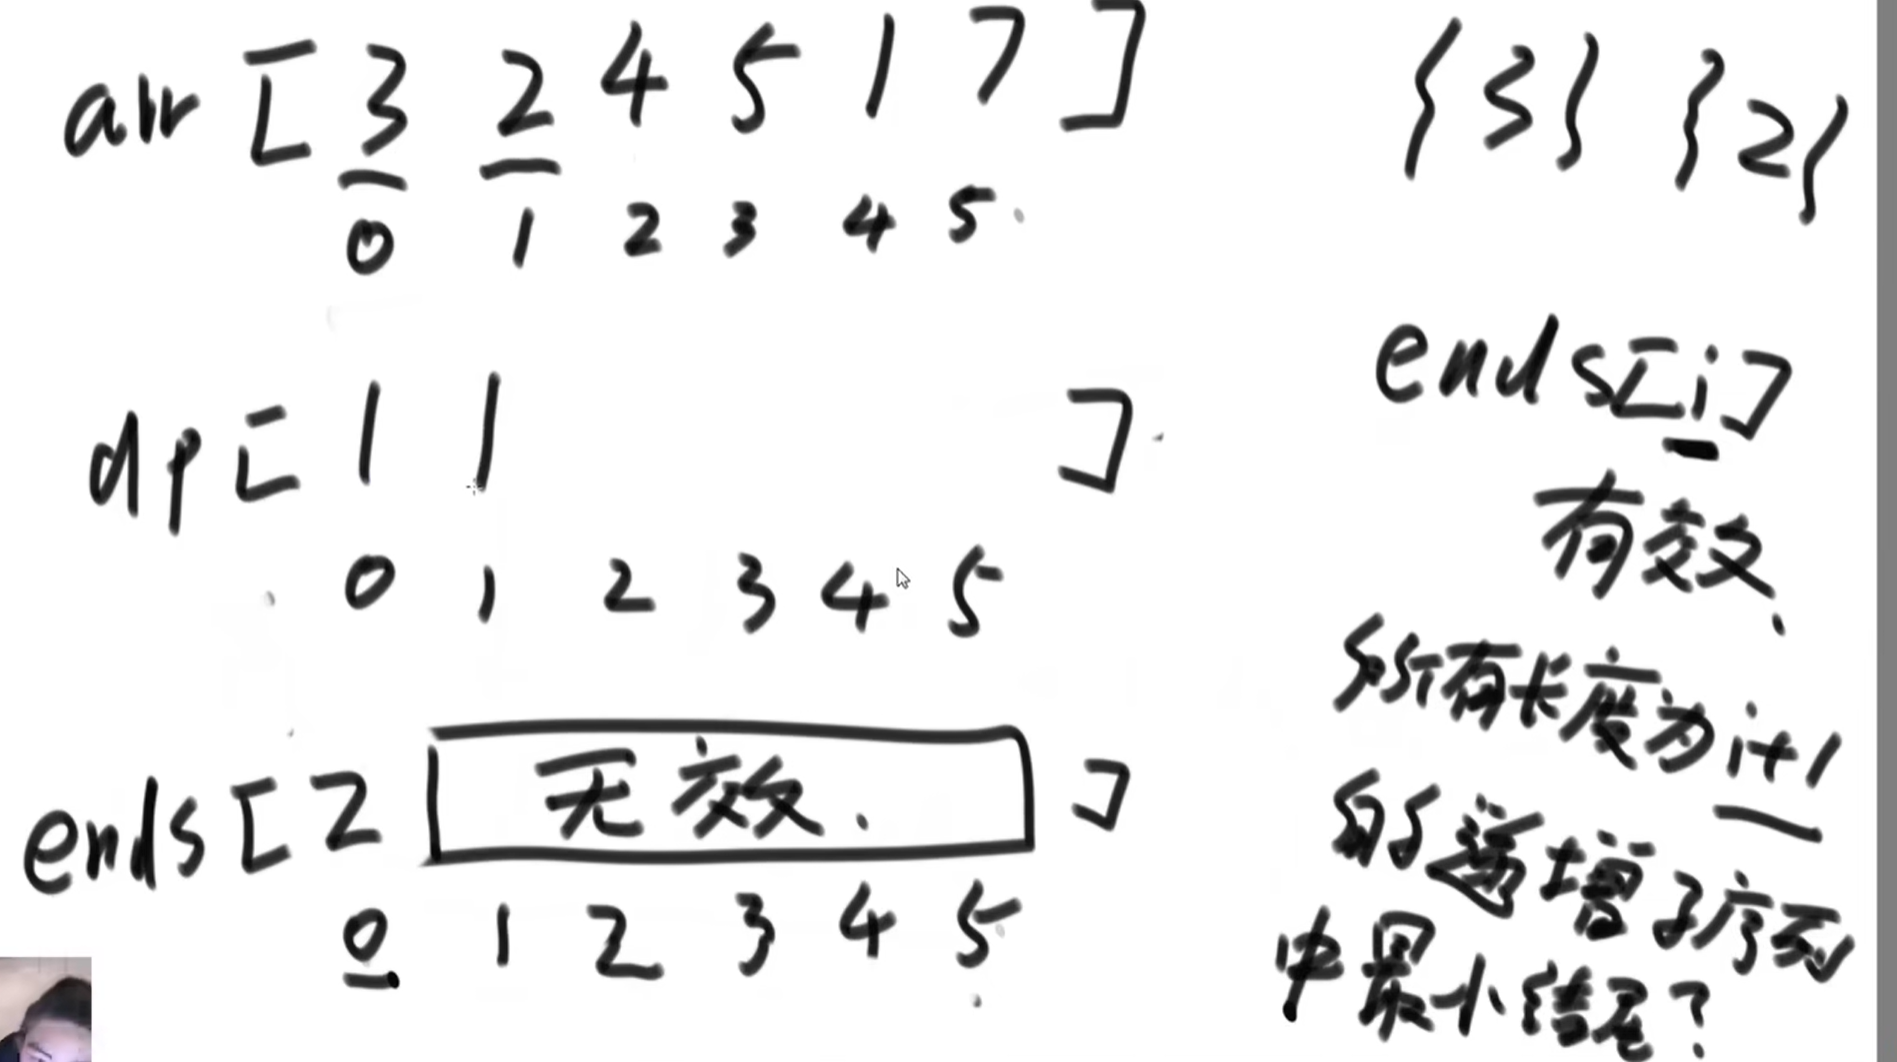 arr [ 3 2 4 5 1 7 ]
0 1 2 3 4 5
{3} {2}
dp [ 1 1 ]
0 1 2 3 4 5
ends [ 2 无效. ]
0 1 2 3 4 5
ends[i]
有效.
所有长度为i+1
的递增子序列
中最小结尾?